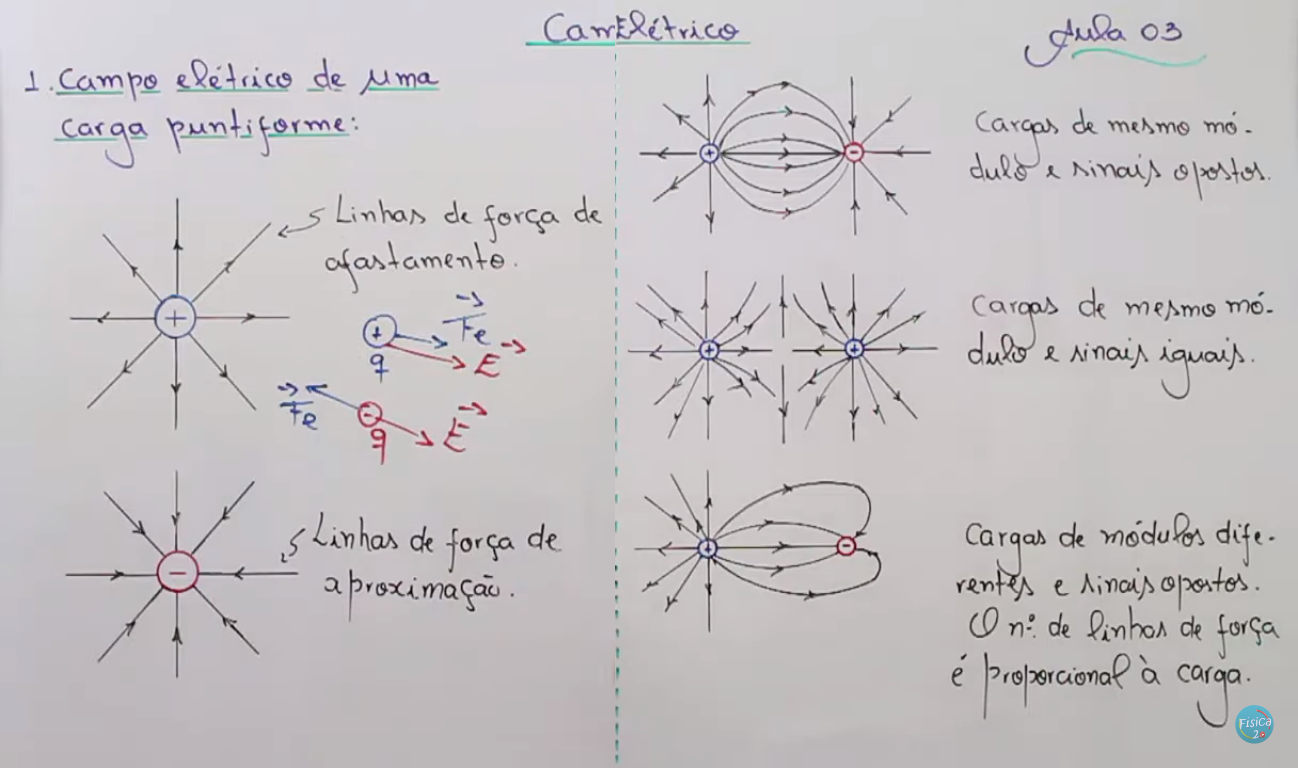 CamElétrico
Aula 03
1. Campo elétrico de uma
carga puntiforme:
Linhas de força de
afastamento.
+
+
q
Fe
E
Fe
-
q
E
-
Linhas de força de
aproximação.
+
-
Cargas de mesmo mó-
dulo e sinais opostos.
+
+
Cargas de mesmo mó-
dulo e sinais iguais.
+
-
Cargas de módulos dife-
rentes e sinais opostos.
O nº. de linhas de força
é proporcional à carga.
Física
2.